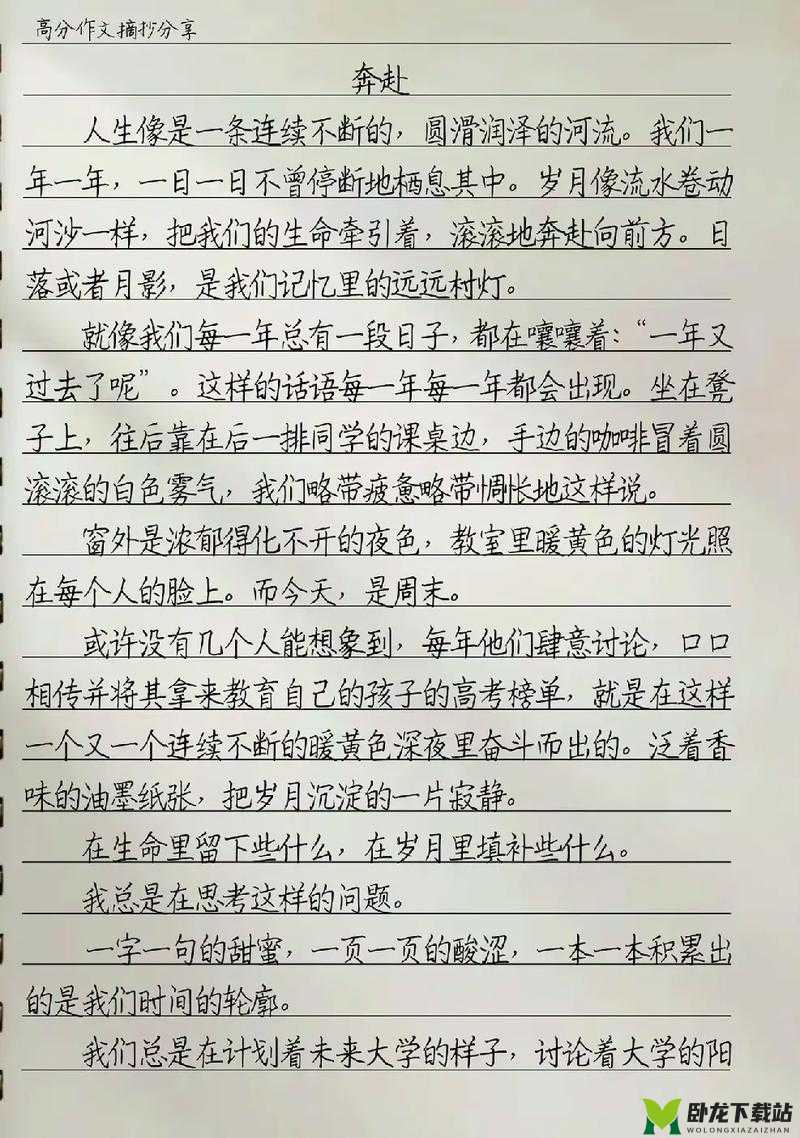 高分作文摘抄分享
奔赴
人生像是一条连续不断的，圆滑润泽的河流。我们一
年一年，一日一日不曾停断地栖息其中。岁月像流水卷动
河沙一样，把我们的生命牵引着，滚滚地奔赴向前方。日
落或者月影，是我们记忆里的远远村灯。
就像我们每一年总有一段日子，都在嚷嚷着：“一年又
过去了呢”。这样的话语每一年每一年都会出现。坐在凳
子上，往后靠在后一排同学的课桌边，手边的咖啡冒着圆
滚滚的白色雾气，我们略带疲惫略带惆怅地这样说。
窗外是浓郁得化不开的夜色，教室里暖黄色的灯光照
在每个人的脸上。而今天，是周末。
或许没有几个人能想象到，每年他们肆意讨论，口口
相传并将其拿来教育自己的孩子的高考榜单，就是在这样
一个又一个连续不断的暖黄色深夜里奋斗而出的。泛着香
味的油墨纸张，把岁月沉淀的一片寂静。
在生命里留下些什么，在岁月里填补些什么。
我总是在思考这样的问题。
一字一句的甜蜜，一页一页的酸涩，一本一本积累出
的是我们时间的轮廓。
我们总是在计划着未来大学的样子，讨论着大学的阳
卧龙下载站
WOLONGXIAZAIZHAN